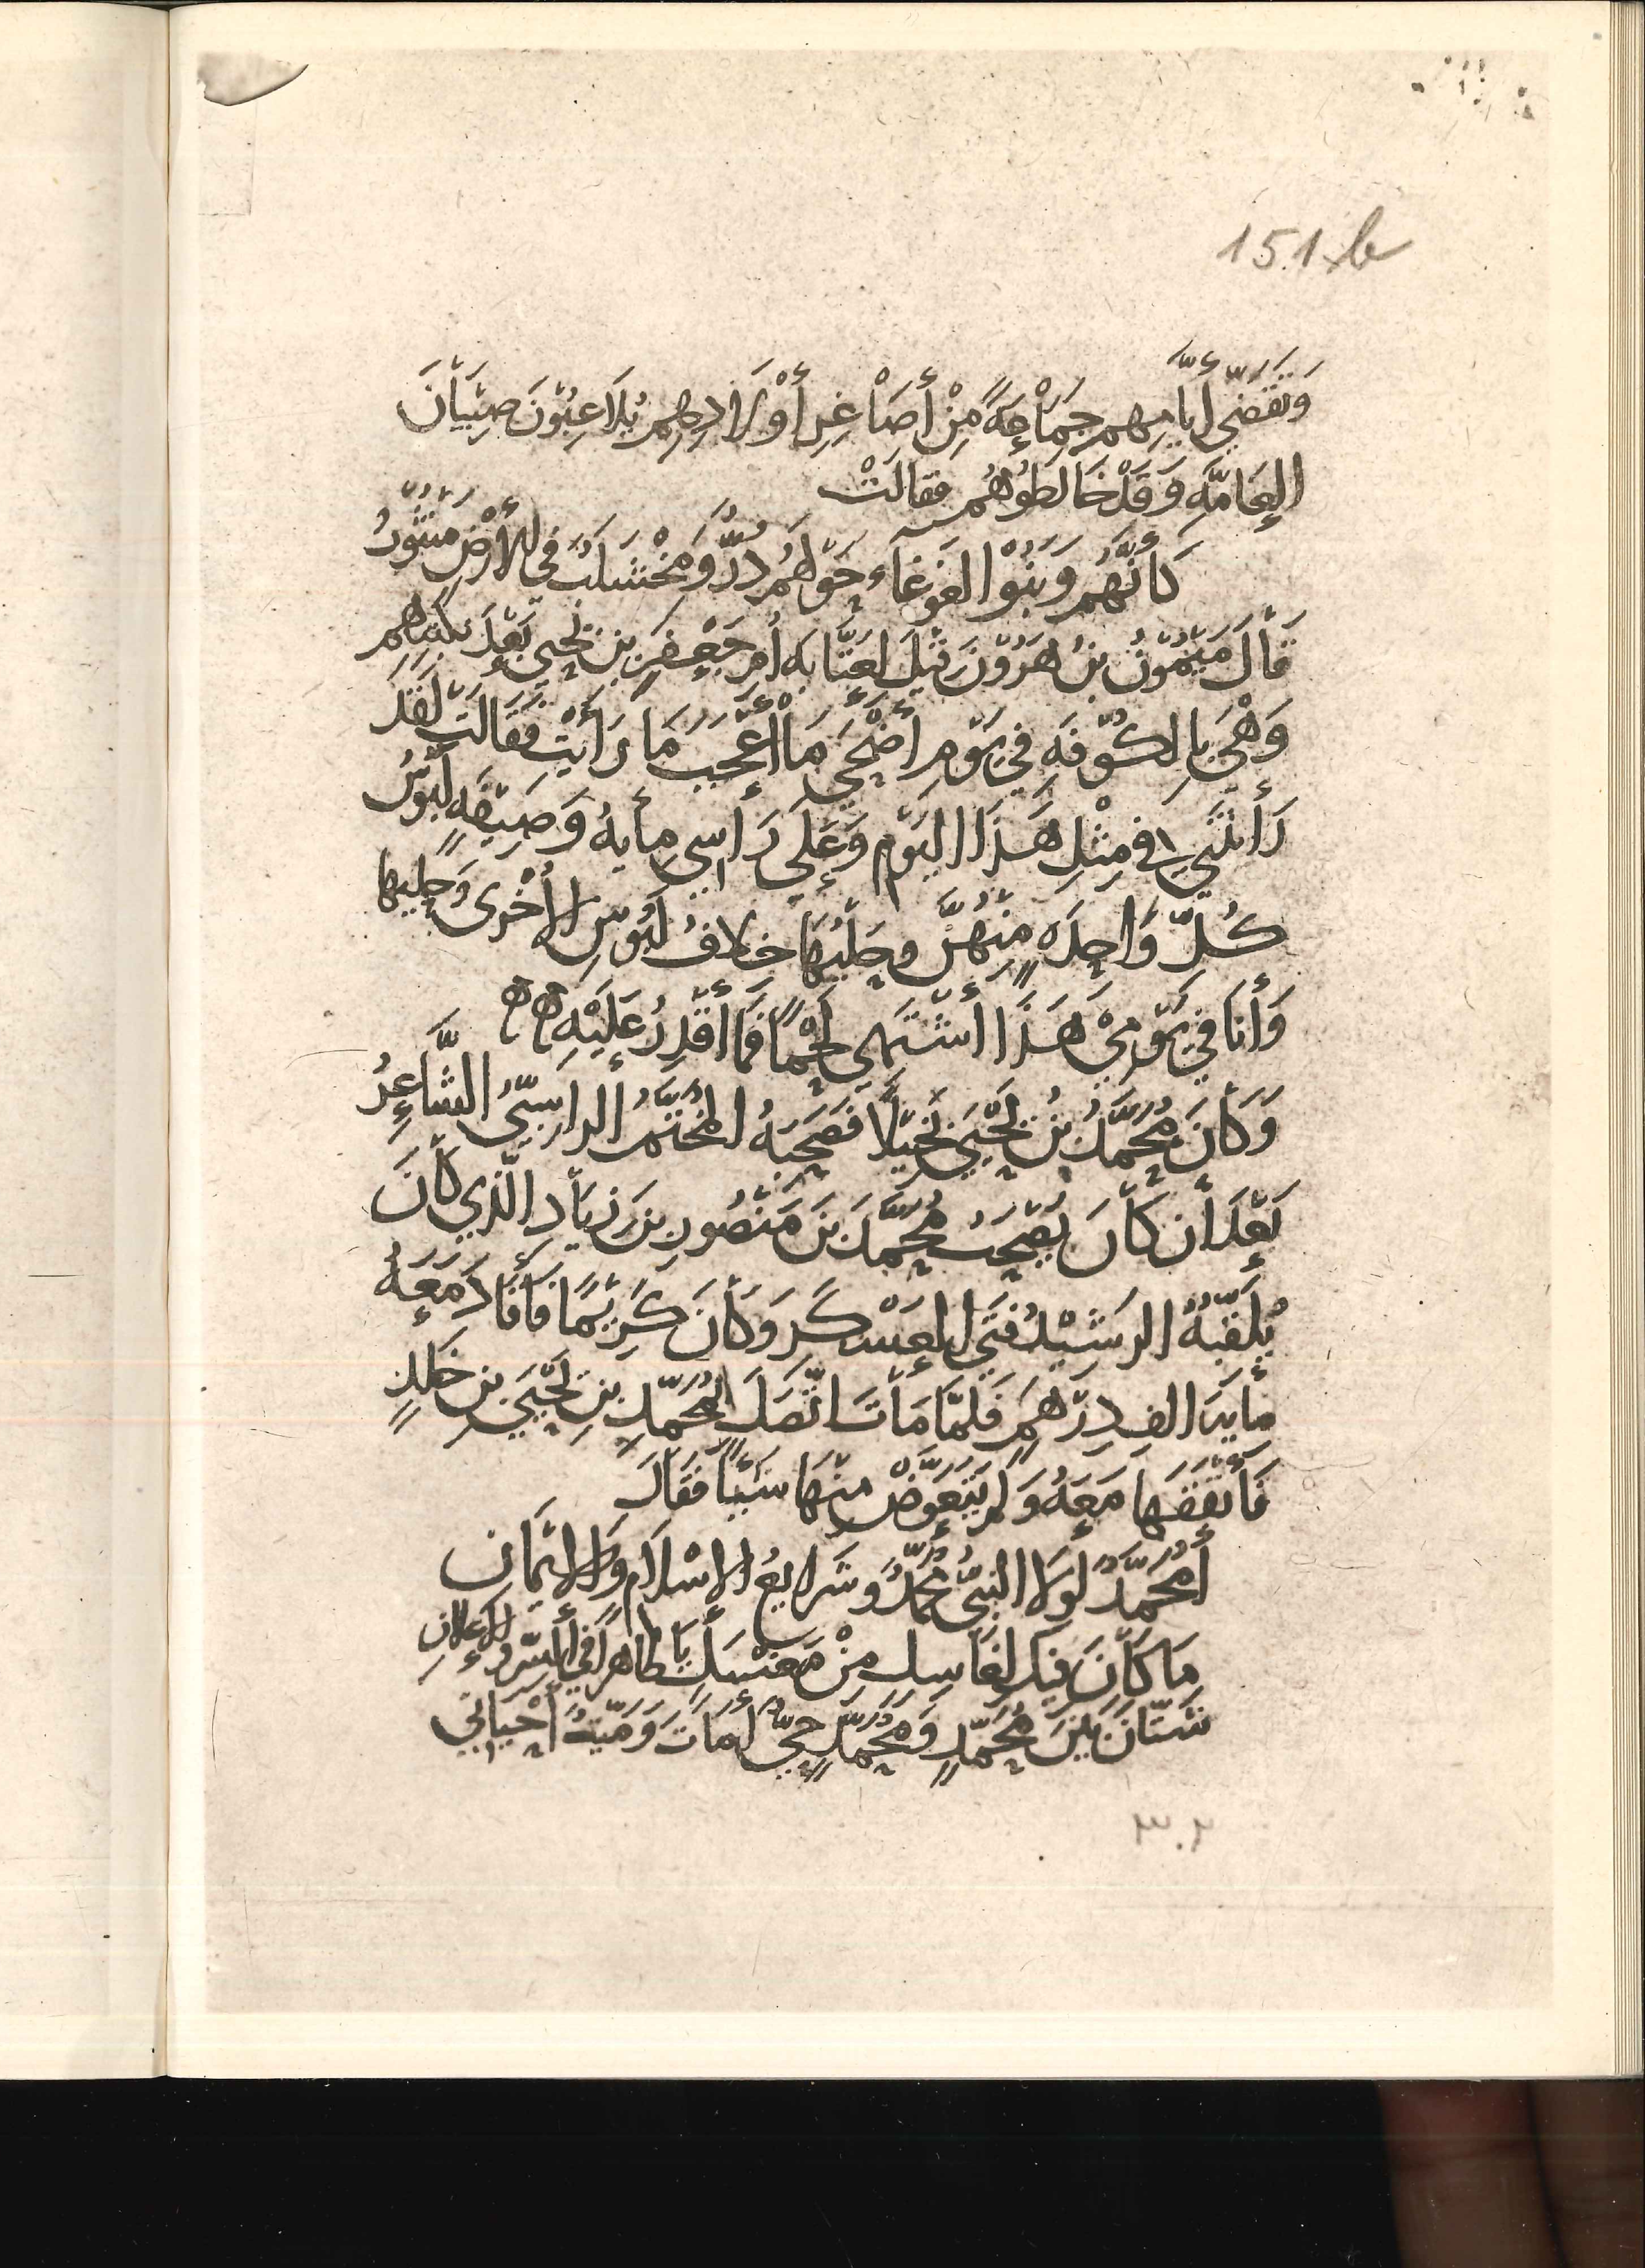 151b
وَتَقَضَّي أَيَّامِهِم جَمَاْعَةً مِنْ أَصَاْغِرِ أَوْلَادِهِم يُلَاعِبُوْنَ صِبْيَاْنَ
العَامَّةِ وَقَدْ خَالَطُوهُم فقالَتْ
كَأَنَّهُم وَبَنُوْا الغَوْغَاءِ حَوْلَهُم دُرٌّ وَمَخْشَلَبٌ في الأَرْضِ مَنْثُوْرُ
قَاْلَ مَيْمُوْنُ بنُ هَرُوْنَ قِيْلَ لعَتَّابَةَ أُمِّ جَعْفَرِ بنِ يَحْيَى بَعْدَ نَكْبَتِهِم
وَهْيَ بِالكُوْفَةِ في يَوْمِ أَضْحَى مَاْ أَعْجَبُ مَا رَأَيْتِ فَقَالَتْ لَقَدْ
رَأَيْتُنِي في مِثْلِ هَذَا اليَوْم وَعَلَى رَاسِي مِأيةُ وَصِيْفَةٍ لَبُوْسُ
كُلِّ وَاْحِدَةٍ مِنْهُنَّ وحَلْيُهَا خلافُ لَبُوْسِ الأُخْرَى وَحَلْيِهَا
وَأَنَا في يَوْمِيْ هَذَا أَشْتَهِي لَحْمًا فَمَا أَقْدِرُ عَلَيْهِ هـ هـ
وَكَانَ مُحَمَّدُ بْنُ يَحْيَى بَخِيْلًا فَصَحِبَهُ المُخَيَّمُ الراسِبِيُّ الشَّاعِرُ
بَعْدَ أَن كَاْنَ يَصْحَبُ مُحَمَّدَ بنَ مَنْصُورِ بنِ زِيَاْدِ الَّذِي كَاْنَ
يُلَقِّبُهُ الرَشِيْدُ فَتَى العَسْكَرِ وَكَاْنَ كَرِيْمًا فَأَفَادَ مَعَهُ
مأيةَ الفِ دِرْهَمٍ فَلَمَّا مَاْتَ اتَّصَلَ بمُحَمَّدِ بنِ يَحْيَى بنِ خَلدٍ
فَأَنْفَقَهَا مَعَهُ وَلَم يَتَعَوَّضْ مِنْهَا شَيْئًا فَقَالَ
أَمُحَمَّدٌ لَوْلَا النبيُّ مُحَمَّدٌ وَشَرايعُ الإِسْلَامِ وَالإِيْمَانِ
مَا كَاْنَ فيكَ لِغَاسِلٍ مِنْ مَغْسَلٍ يَا طَاهِراً في السِّرِّ والإِعْلَانِ
شَتَّانَ بَيْنَ مُحَمَّدٍ وَمُحَمَّدٍ حَيٌّ أَمَاتَ وَمَيِّتٌ أَحْيَانِي
٣٠٢